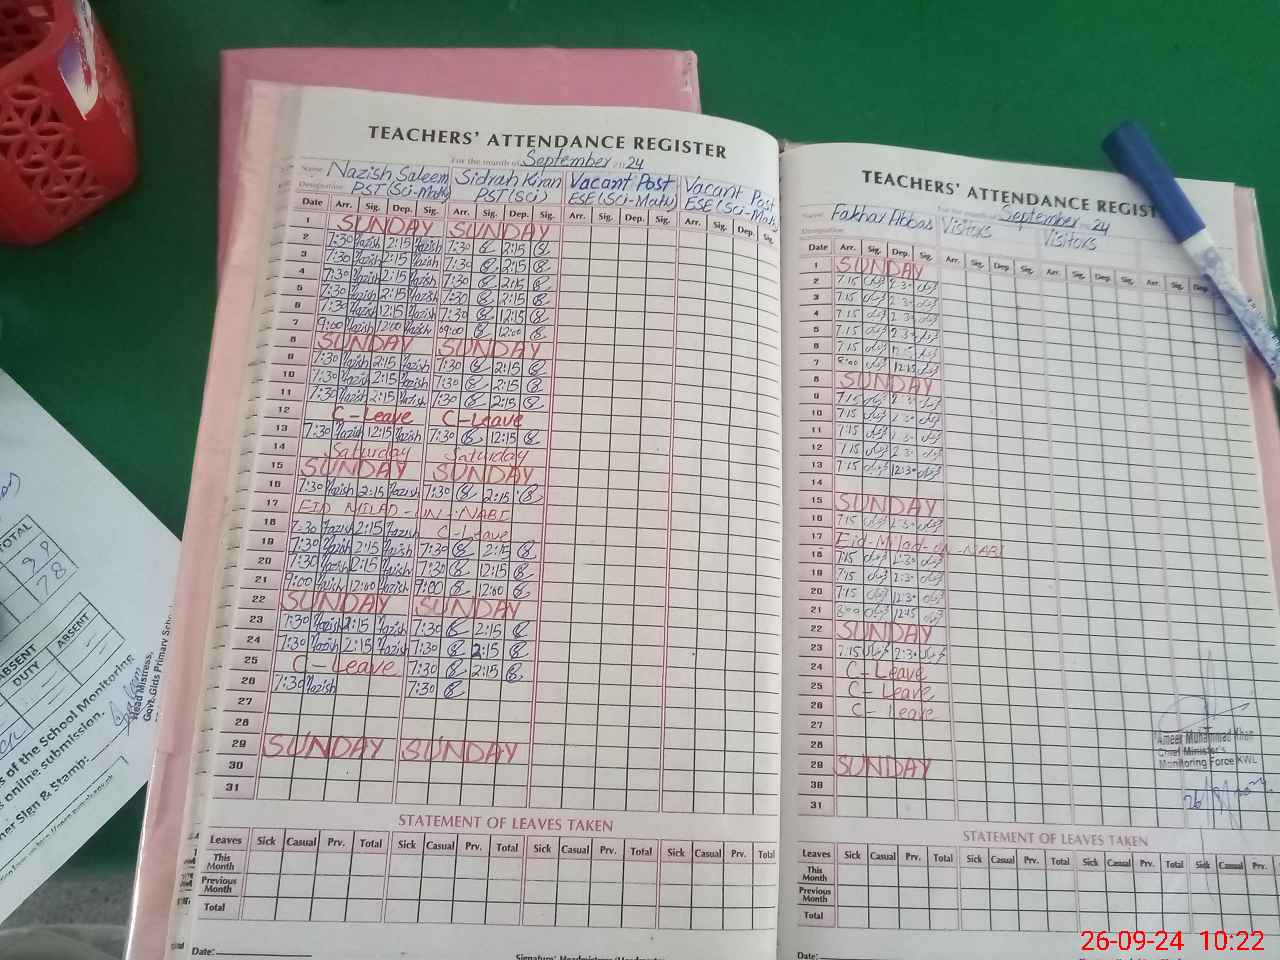 TEACHERS' ATTENDANCE REGISTER
For the month of September 2024
Name Nazish Saleem Sidrah Kiran Vacant Post Vacant Post
Designation PST (Sci-Math) PST (Sci) ESE (Sci-Math) ESE (Sci-Math)
Date Arr. Sig. Dep. Sig. Arr. Sig. Dep. Sig. Arr. Sig. Dep. Sig. Arr. Sig. Dep. Sig.
1 SUNDAY SUNDAY
2 7:30 Nazish 2:15 Nazish 7:30 2:15
3 7:30 Nazish 2:15 Nazish 7:30 2:15
4 7:30 Nazish 2:15 Nazish 7:30 2:15
5 7:30 Nazish 2:15 Nazish 7:30 2:15
6 7:30 Nazish 12:15 Nazish 7:30 12:15
7 9:00 Nazish 12:00 Nazish 09:00 12:00
8 SUNDAY SUNDAY
9 7:30 Nazish 2:15 Nazish 7:30 2:15
10 7:30 Nazish 2:15 Nazish 7:30 2:15
11 7:30 Nazish 2:15 Nazish 7:30 2:15
12 C-Leave C-Leave
13 7:30 Nazish 12:15 Nazish 7:30 12:15
14 Saturday Saturday
15 SUNDAY SUNDAY
16 7:30 Nazish 2:15 Nazish 7:30 2:15
17 EID MILAD-UN-NABI
18 7:30 Nazish 2:15 Nazish C-Leave
19 7:30 Nazish 2:15 Nazish 7:30 2:15
20 7:30 Nazish 12:15 Nazish 7:30 12:15
21 9:00 Nazish 12:00 Nazish 9:00 12:00
22 SUNDAY SUNDAY
23 7:30 Nazish 2:15 Nazish 7:30 2:15
24 7:30 Nazish 2:15 Nazish 7:30 2:15
25 C-Leave 7:30 2:15
26 7:30 Nazish 7:30
27
28
29 SUNDAY SUNDAY
30
31
STATEMENT OF LEAVES TAKEN
Leaves Sick Casual Prv. Total Sick Casual Prv. Total Sick Casual Prv. Total Sick Casual Prv. Total
This Month
Previous Month
Total
Date:
TEACHERS' ATTENDANCE REGIST
For the month of September 2024
Name Fakhar Abbas Visitors Visitors
Designation
Date Arr. Sig. Dep. Sig. Arr. Sig. Dep. Sig. Arr. Sig. Dep. Sig. Arr. Sig. Dep.
1 SUNDAY
2 7:15 2:30
3 7:15 2:30
4 7:15 2:30
5 7:15 2:30
6 7:15
7 8:00 12:15
8 SUNDAY
9 7:15 2:30
10 7:15 2:30
11 7:15 2:30
12 7:15 2:30
13 7:15 12:30
14
15 SUNDAY
16 7:15 2:30
17 Eid-Milad-UN-NABI
18 7:15 2:30
19 7:15 2:30
20 7:15 12:30
21 8:00 12:45
22 SUNDAY
23 7:15 2:30
24 C-Leave
25 C-Leave
26 C-Leave
27
28
29 SUNDAY
30
31
Ameer Muhammad Khan
Chief Minister's
Monitoring Force KWL
STATEMENT OF LEAVES TAKEN
Leaves Sick Casual Prv. Total Sick Casual Prv. Total Sick Casual Prv. Total Sick Casual Prv. Total
This Month
Previous Month
Total
Date:
TOTAL
78
ABSENT
DUTY
ABSENT
s of the School Monitoring
s online submission.
her Sign & Stamp:
Head Mistress,
Govt. Girls Primary School
26-09-24 10:22